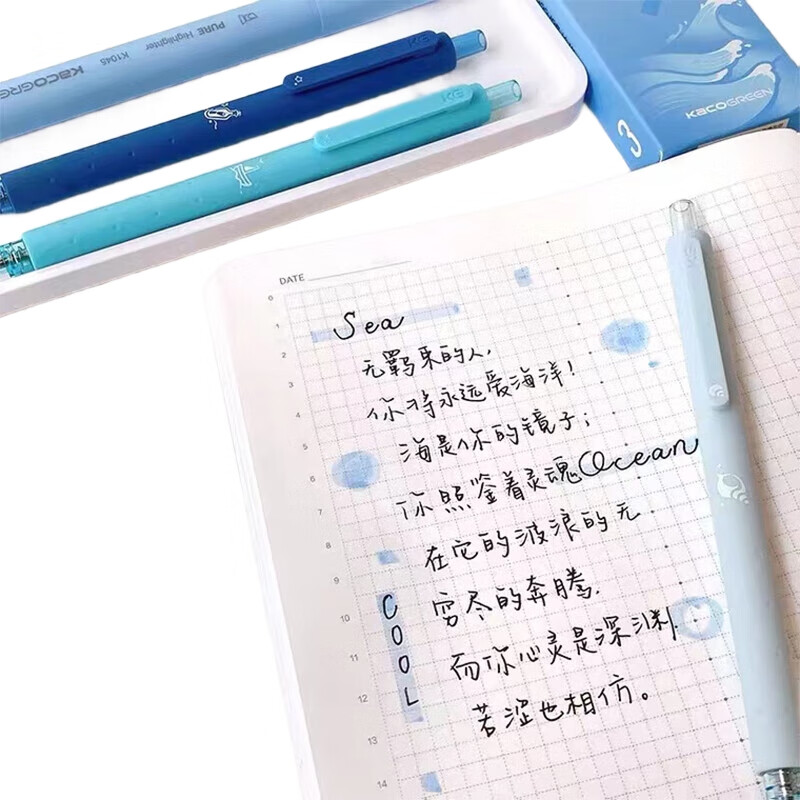 KACOGREEN PURE Highlighter K1045
EXI
EXI
KACOGREEN
3
DATE
0
1
2
3
4
5
6
7
8
9
10
11
12
13
14
Sea
无羁束的人,
你将永远爱海洋!
海是你的镜子;
你照鉴着灵魂Ocean
在它的波浪的无
穷尽的奔腾.
而你心灵是深渊.
苦涩也相仿。
COOL